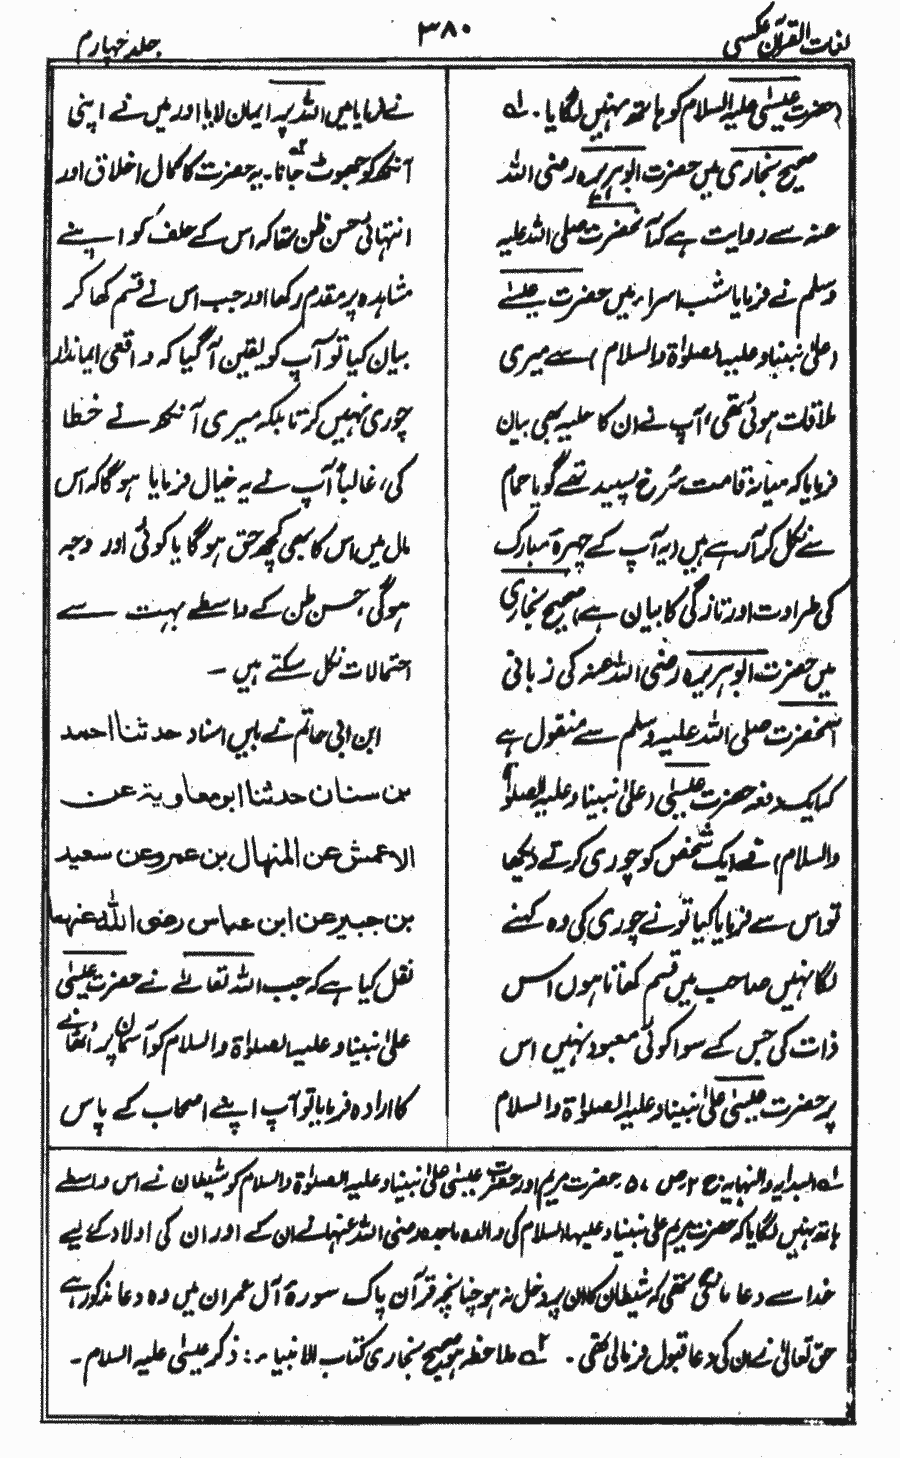 لغات القرآن عکسی
۳۸۰
جلد چہارم
(حضرت عیسیٰ علیہ السلام کو ہاتھ نہیں لگایا۔ لہ
صحیح بخاری میں حضرت ابو ہریرہ رضی اللہ
عنہ سے روایت ہے کہ آنحضرت صلی اللہ علیہ
وسلم نے فرمایا شب اسراء میں حضرت عیسےٰ
(علیٰ نبینا و علیہ الصلوٰۃ والسلام) سے میری
ملاقات ہوئی تھی، آپ نے ان کا حلیہ بھی بیان
فرمایا کہ میانہ قامت سُرخ سپید تھے گویا حمام
سے نکل کر آرہے ہیں (یہ آپ کے چہرۂ مبارک
کی طراوت اور تازگی کا بیان ہے) صحیح بخاری
میں حضرت ابو ہریرہ رضی اللہ عنہ کی زبانی
آنحضرت صلی اللہ علیہ وسلم سے منقول ہے
کہ ایک دفعہ حضرت عیسیٰ (علیٰ نبینا و علیہ الصلوٰۃ
والسلام) نے ایک شخص کو چوری کرتے دیکھا
تو اس سے فرمایا کیا تو نے چوری کی وہ کہنے
لگا نہیں صاحب میں قسم کھاتا ہوں اس
ذات کی جس کے سوا کوئی معبود نہیں اس
پر حضرت عیسیٰ علیٰ نبینا و علیہ الصلوٰۃ والسلام
نے فرمایا میں اللہ پر ایمان لایا اور میں نے اپنی
آنکھ کو جھوٹ جانا۔ یہ حضرت کا کمال اخلاق اور
انتہائی حسن ظن تھا کہ اس کے حلف کو اپنے
مشاہدہ پر مقدم رکھا اور جب اس نے قسم کھا کر
بیان کیا تو آپ کو یقین آگیا کہ واقعی ایماندار
چوری نہیں کرتا بلکہ میری آنکھ نے خطا
کی، غالباً آپ نے یہ خیال فرمایا ہو گا کہ اس
مال میں اس کا بھی کچھ حق ہو گا یا کوئی اور وجہ
ہو گی، حسن ظن کے واسطے بہت سے
احتمالات نکل سکتے ہیں ۔
ابن ابی حاتم نے بایں اسناد حدثنا احمد
بن سنان حدثنا ابو معاویۃ عن
الاعمش عن المنهال بن عمرو عن سعید
بن جبیر عن ابن عباس رضی اللہ عنہما
نقل کیا ہے کہ جب اللہ تعالےٰ نے حضرت عیسیٰ
علیٰ نبینا و علیہ الصلوٰۃ والسلام کو آسمان پر اٹھانے
کا ارادہ فرمایا تو آپ اپنے اصحاب کے پاس
لہ البدایہ والنہایہ ج ۲ ص ۵۷۔ حضرت مریم اور حضرت عیسیٰ علیٰ نبینا و علیہ الصلوٰۃ والسلام کو شیطان نے اس واسطے
ہاتھ نہیں لگایا کہ حضرت مریم علیٰ نبینا و علیہا السلام کی والدہ ماجدہ رضی اللہ عنہا نے ان کے اور ان کی اولاد کے لیے
خدا سے دعا مانگی تھی کہ شیطان کا ان پر دخل نہ ہو چنانچہ قرآن پاک سورۂ آل عمران میں وہ دعا مذکور ہے
حق تعالیٰ نے ان کی دعا قبول فرمالی تھی ۔ ۲ہ ملاحظہ ہو صحیح بخاری کتاب الانبیاء ۔: ذکر عیسیٰ علیہ السلام ۔